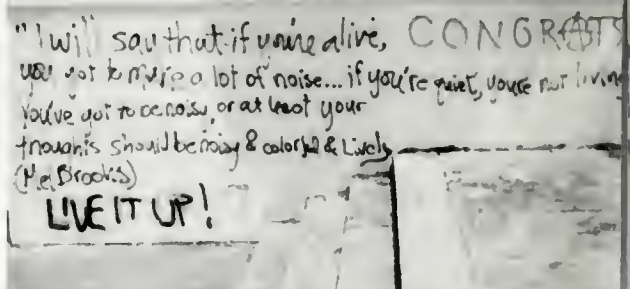 "I will say that if you're alive, CONGRATS
you got to make a lot of noise... if you're quiet, you're not living
You've got to be noisy, or at least your
thoughts should be noisy & colorful & Lively
(Mel Brooks)
LIVE IT UP!